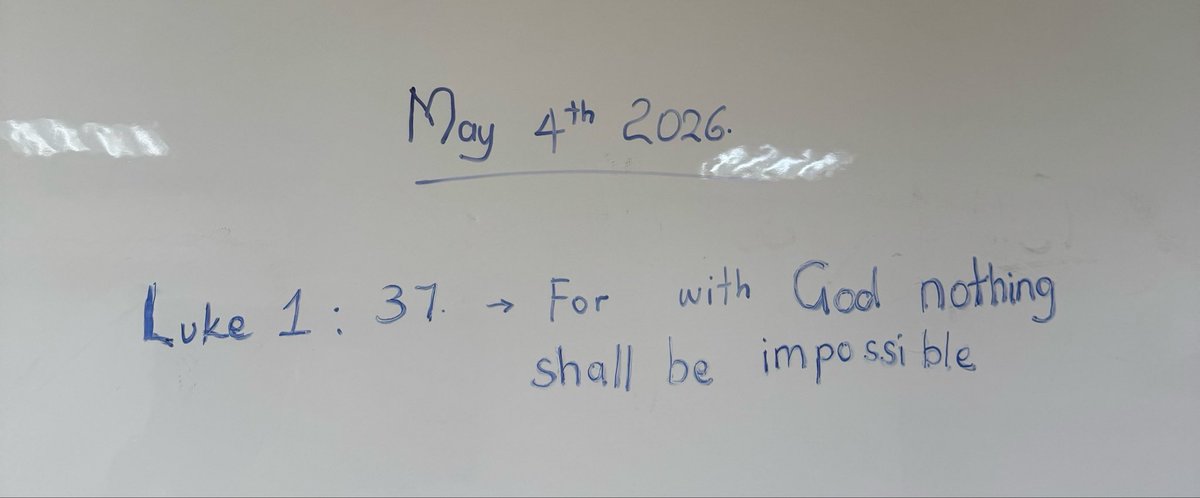 May 4th 2026.
Luke 1 : 37. → For with God nothing
shall be impossible